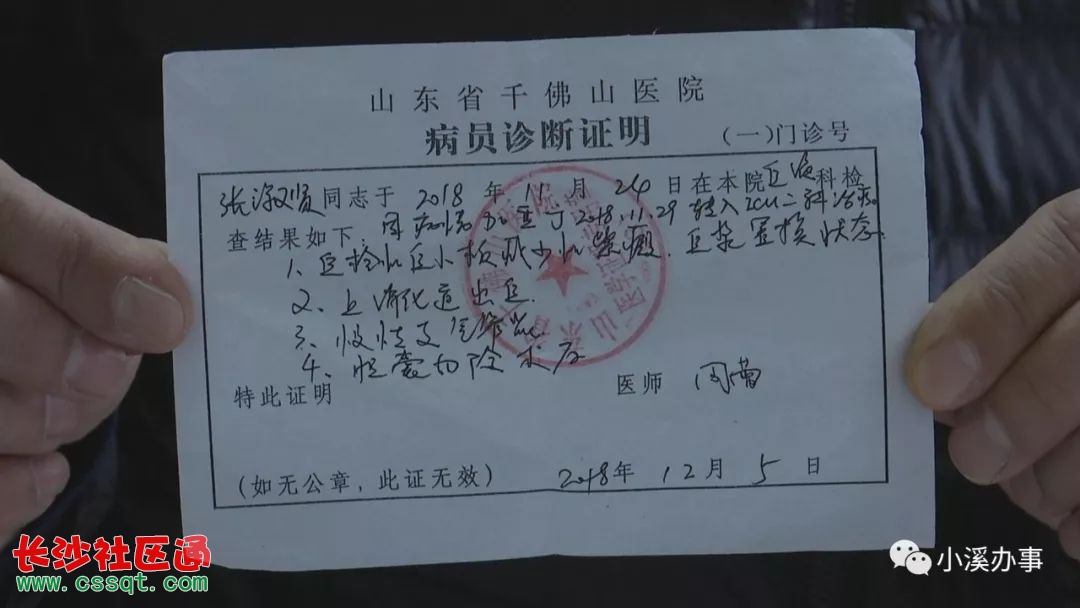 山东省千佛山医院
病员诊断证明 (一)门诊号
张 同志于 2018 年 11 月 26 日在本院血液科检
因病情加重于2018.11.29转入ICU二科治疗
查结果如下:
1、血栓性血小板减少性紫癜.血浆置换状态.
2、上消化道出血.
3、慢性支气管炎
4、胆囊切除术后
特此证明 医师
(如无公章,此证无效) 2018年 12月 5 日
长沙社区通
www.cssqt.com
小溪办事